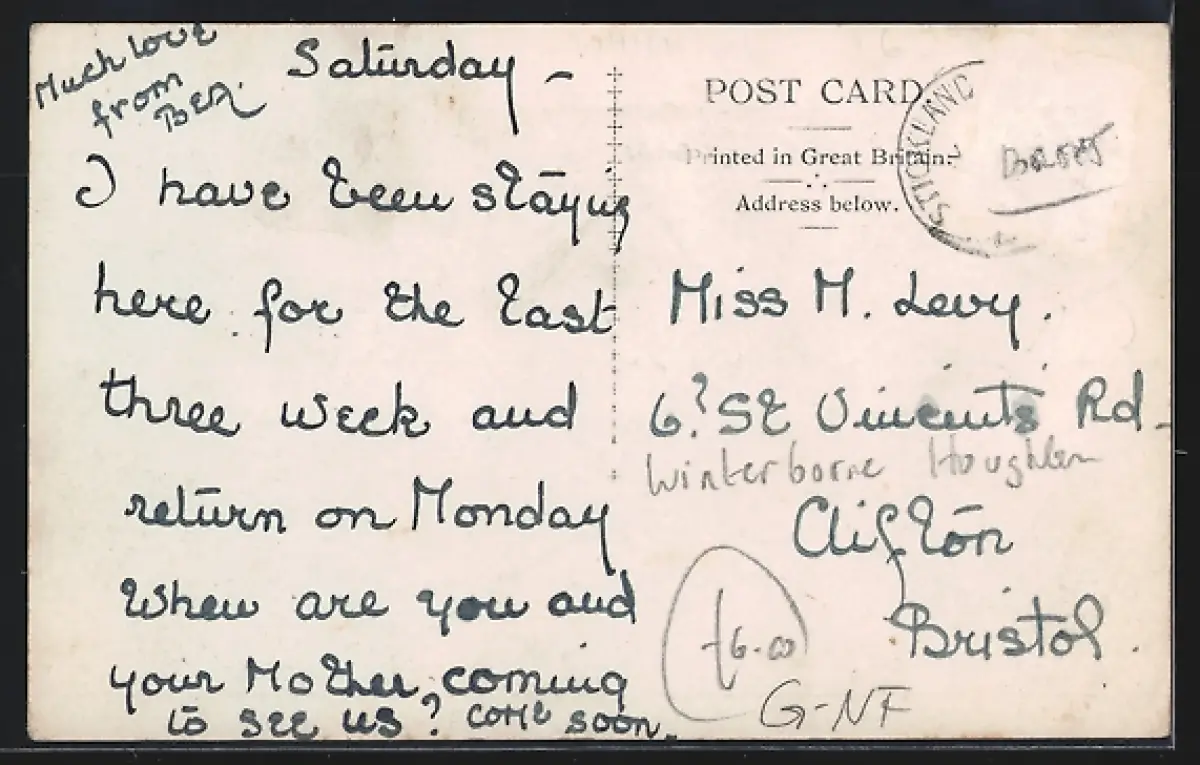 Much love
from
Bea.
Saturday –
I have been staying
here for the last
three week and
return on Monday
When are you and
your Mother, coming
to see us? come soon.
POST CARD
Printed in Great Britain.
Address below.
STICKLAND
DORSET
Miss M. Levy.
6? St Vincents Rd.
Winterborne Houghton
Clifton
Bristol.
6.00
G-NF